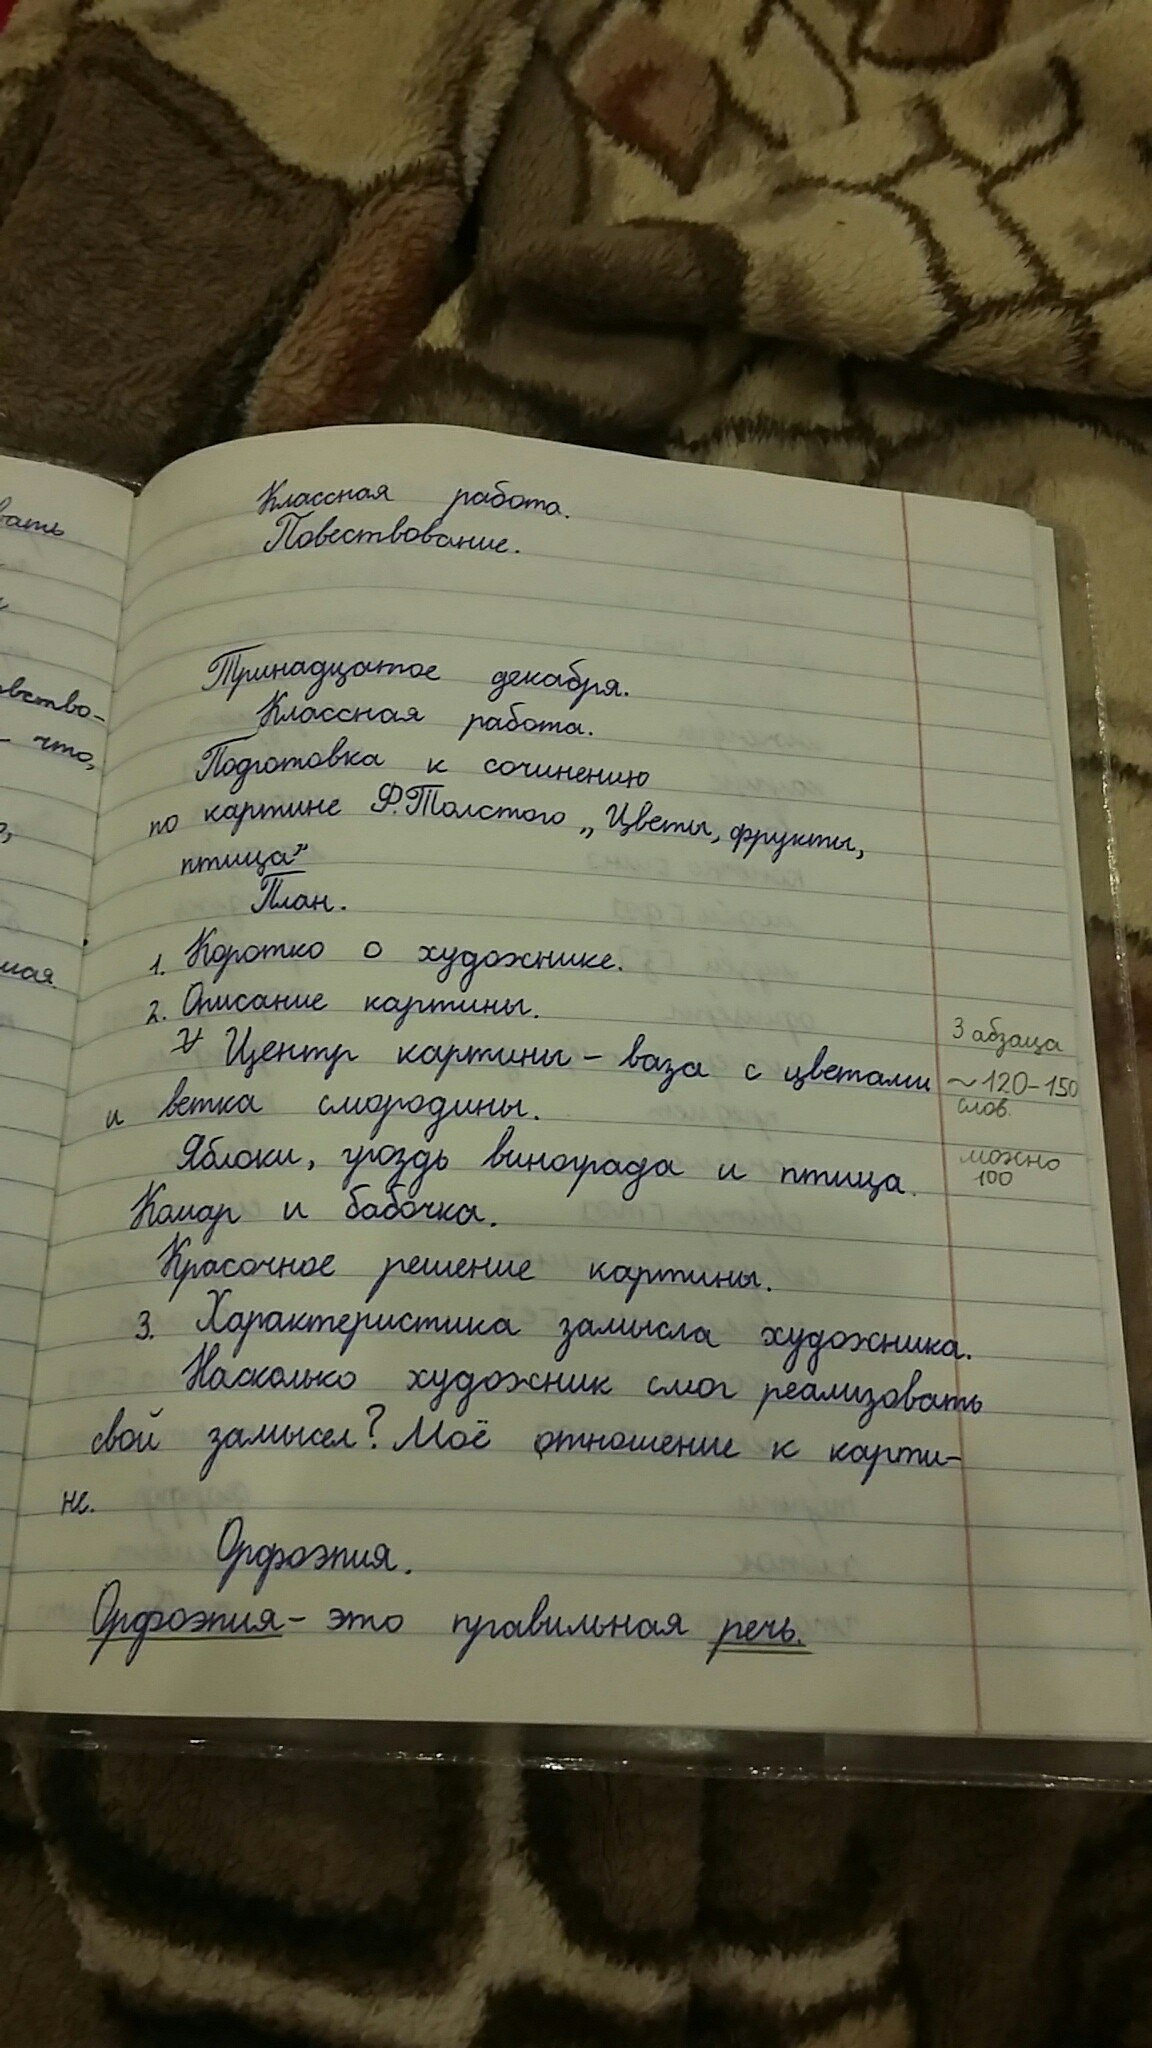 Классная работа.
Повествование.
Тринадцатое декабря.
Классная работа.
Подготовка к сочинению
по картине Ф.Толстого „Цветы, фрукты,
птица”
План.
1. Коротко о художнике.
2. Описание картины.
Центр картины – ваза с цветами
и ветка смородины.
Яблоки, гроздь винограда и птица.
Комар и бабочка.
Красочное решение картины.
3. Характеристика замысла художника.
Насколько художник смог реализовать
свой замысел? Моё отношение к карти-
не.
Орфоэпия.
Орфоэпия – это правильная речь.
3 абзаца
~ 120-150
слов.
можно
100
вать
вство-
- что,
мая.